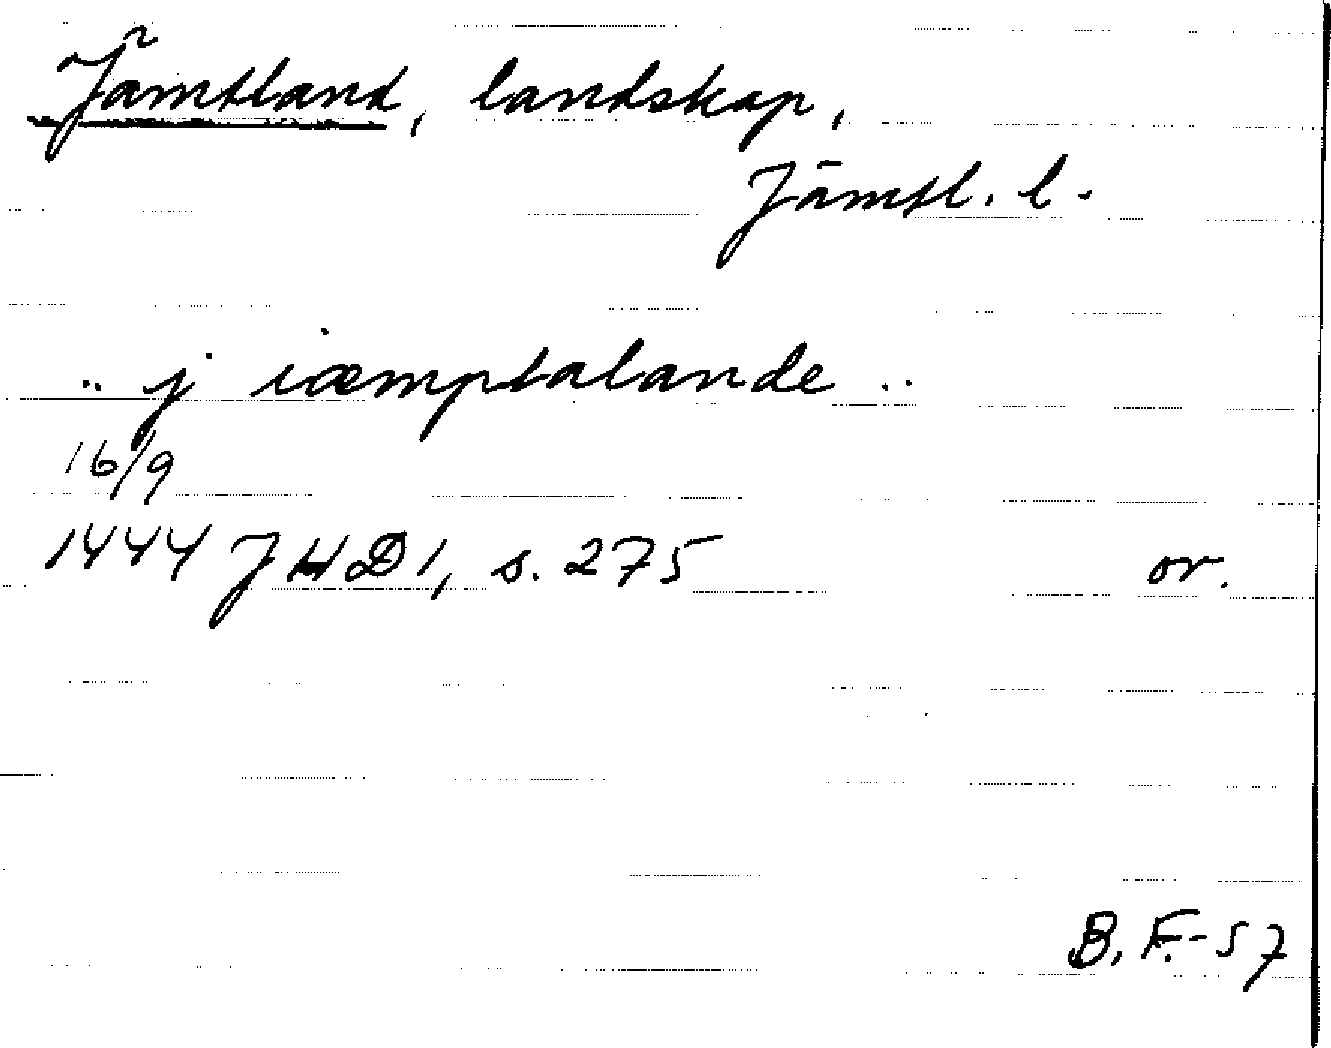 Jämtland, landskap,
Jämtl. l.
.. j iæmptalande ..
16/9
1444 JHD 1, s. 275 or.
B. F. - 57